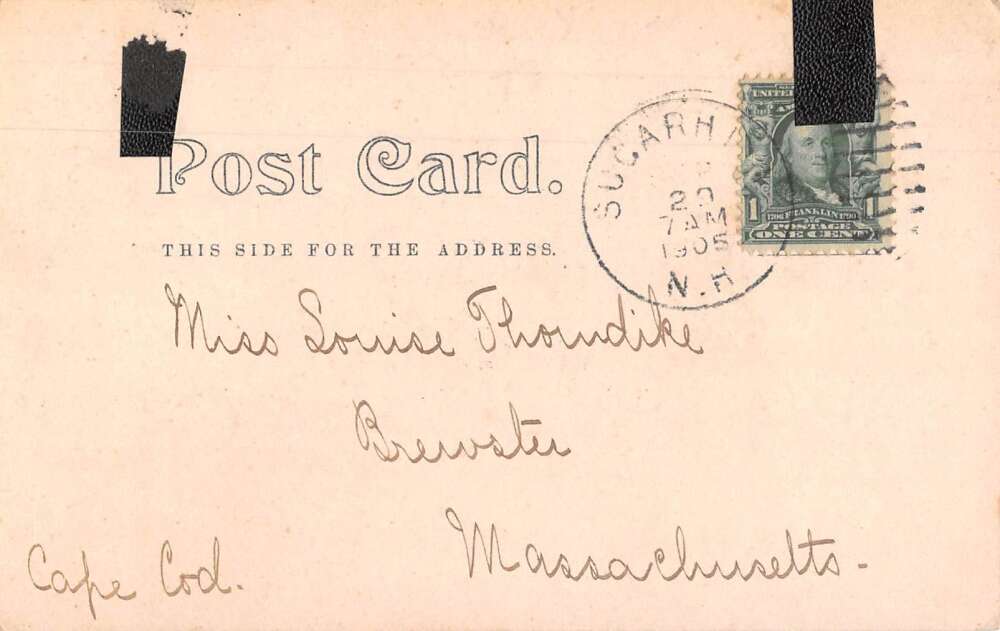 Post Card.
THIS SIDE FOR THE ADDRESS.
SUGARH
20
7AM
1905
N.H
UNITED
1 1
1706 FRANKLIN 1790
POSTAGE
ONE CENT
Miss Louise Thorndike
Brewster
Massachusetts-
Cape Cod.